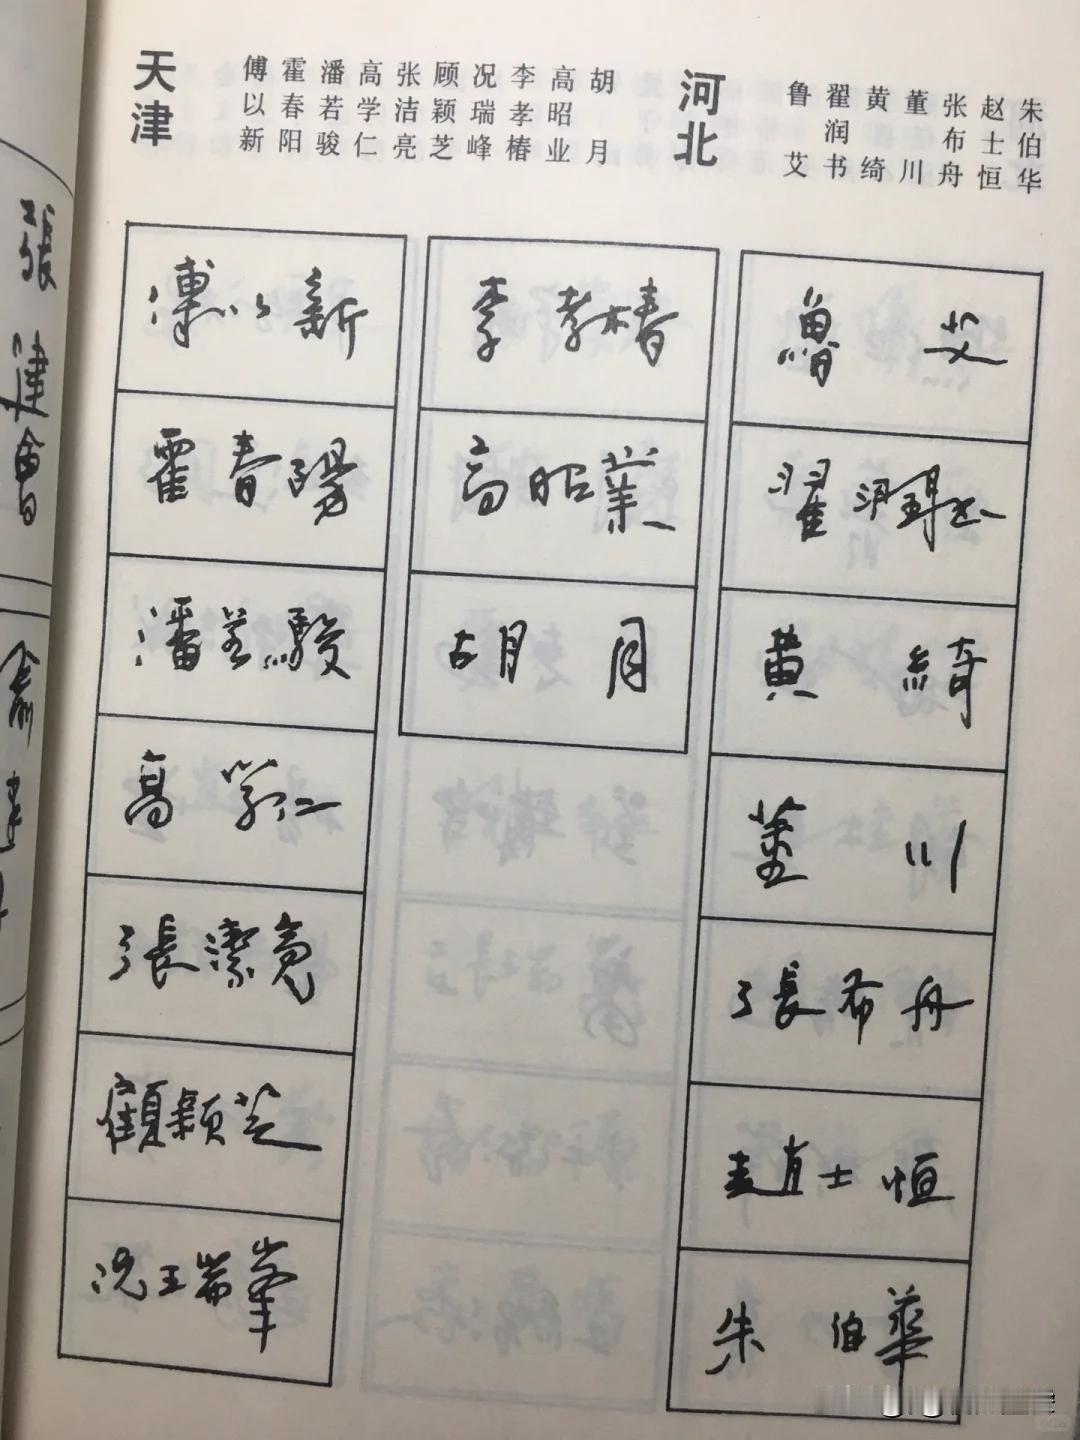 天津
傅以新
霍春阳
潘若骏
高学仁
张洁亮
顾颖芝
况瑞峰
李孝椿
高昭业
胡月
河北
鲁艾
翟润书
黄绮
董川
张布舟
赵士恒
朱伯华
張建會
傅以新
霍春陽
潘若駿
高學仁
張潔亮
顧穎芝
况瑞峯
李孝椿
高昭業
胡月
魯艾
黄綺
董川
張希舟
趙士恒
朱伯華